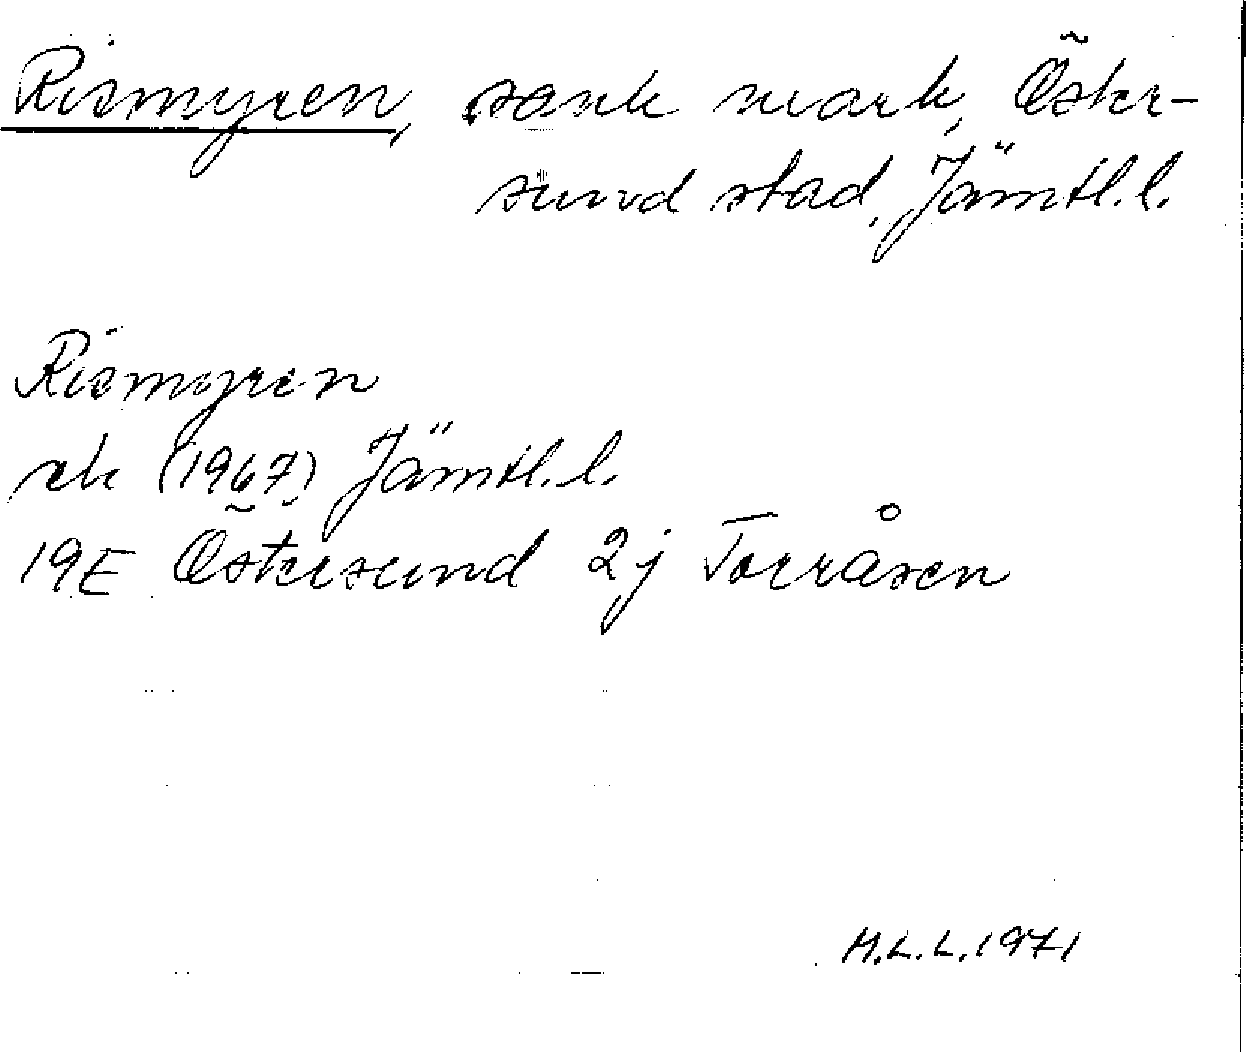 Rismyren, sank mark, Öster-
sund stad, Jämtl. l.
Rismyren
ek (1967) Jämtl. l.
19E Östersund 2j Torråsen
M.L.L. 1971